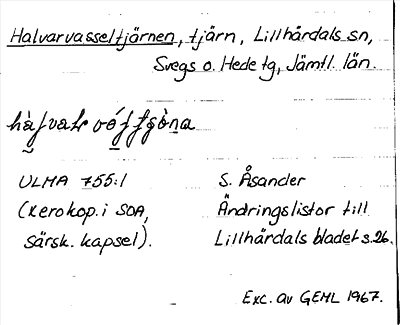 Halvarvasseltjärnen, tjärn, Lillhärdals sn,
Svegs o. Hede tg, Jämtl. län.
ULMA 755:1
(Xerokop. i SOA,
särsk. kapsel).
S. Åsander
Ändringslistor till
Lillhärdals bladet s.26.
Exc. av GEHL 1967.